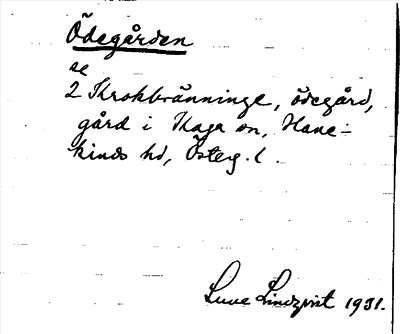 Ödegården
se
2 Krokbränninge, ödegård,
gård i Kaga sn, Hane-
kinds hd, Österg. l.
Lindqvist 1931.